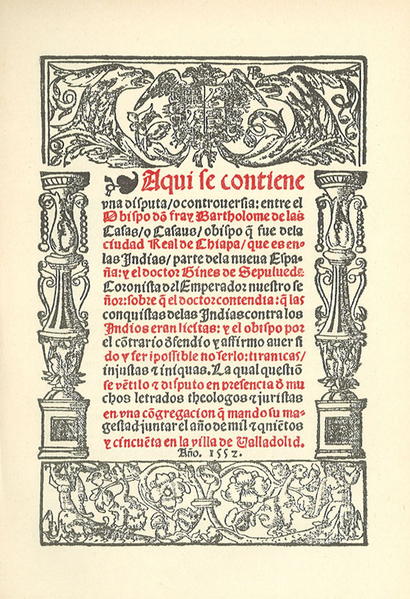 Aqui se contiene
vna disputa/o controuersia: entre el
Obispo dõ fray Bartholome de las
Casas/o Casaus/obispo q̃ fue dela
ciudad Real de Chiapa/que es en-
las Indias/parte dela nueua Espa-
ña: y el doctor Gines de Sepulueda
Coronista del Emperador nuestro se
ñor: sobre q̃ el doctor contendia: q̃ las
conquistas delas Indias contra los
Indios eran licitas: y el obispo por
el cõtrario d̃fendio y affirmo auer si
do y ser ĩpossible no serlo: tiranicas/
injustas e iniquas. La qual questiõ
se vẽtilo e disputo en presencia d̃ mu
chos letrados theologos e juristas
en vna cõgregacion q̃ mando su ma-
gestad juntar el año de mil e quiẽtos
y cincuẽta en la villa de Valladolid.
Año. 1552.